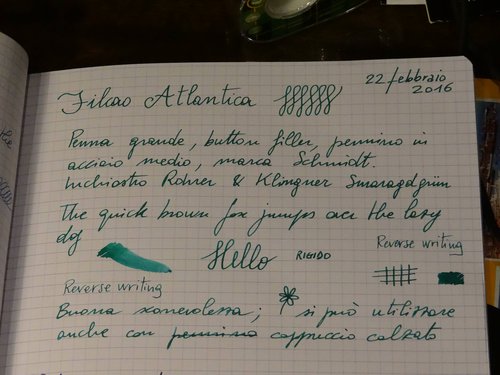 Filcao Atlantica
22 febbraio
2016
Penna grande, button filler, pennino in
acciaio medio, marca Schmidt.
Inchiostro Rohrer & Klingner Smaragdgrün
The quick brown fox jumps over the lazy
dog
Hello
RIGIDO
Reverse writing
Reverse writing
Buona scorrevolezza; si può utilizzare
anche con pennino cappuccio calzato